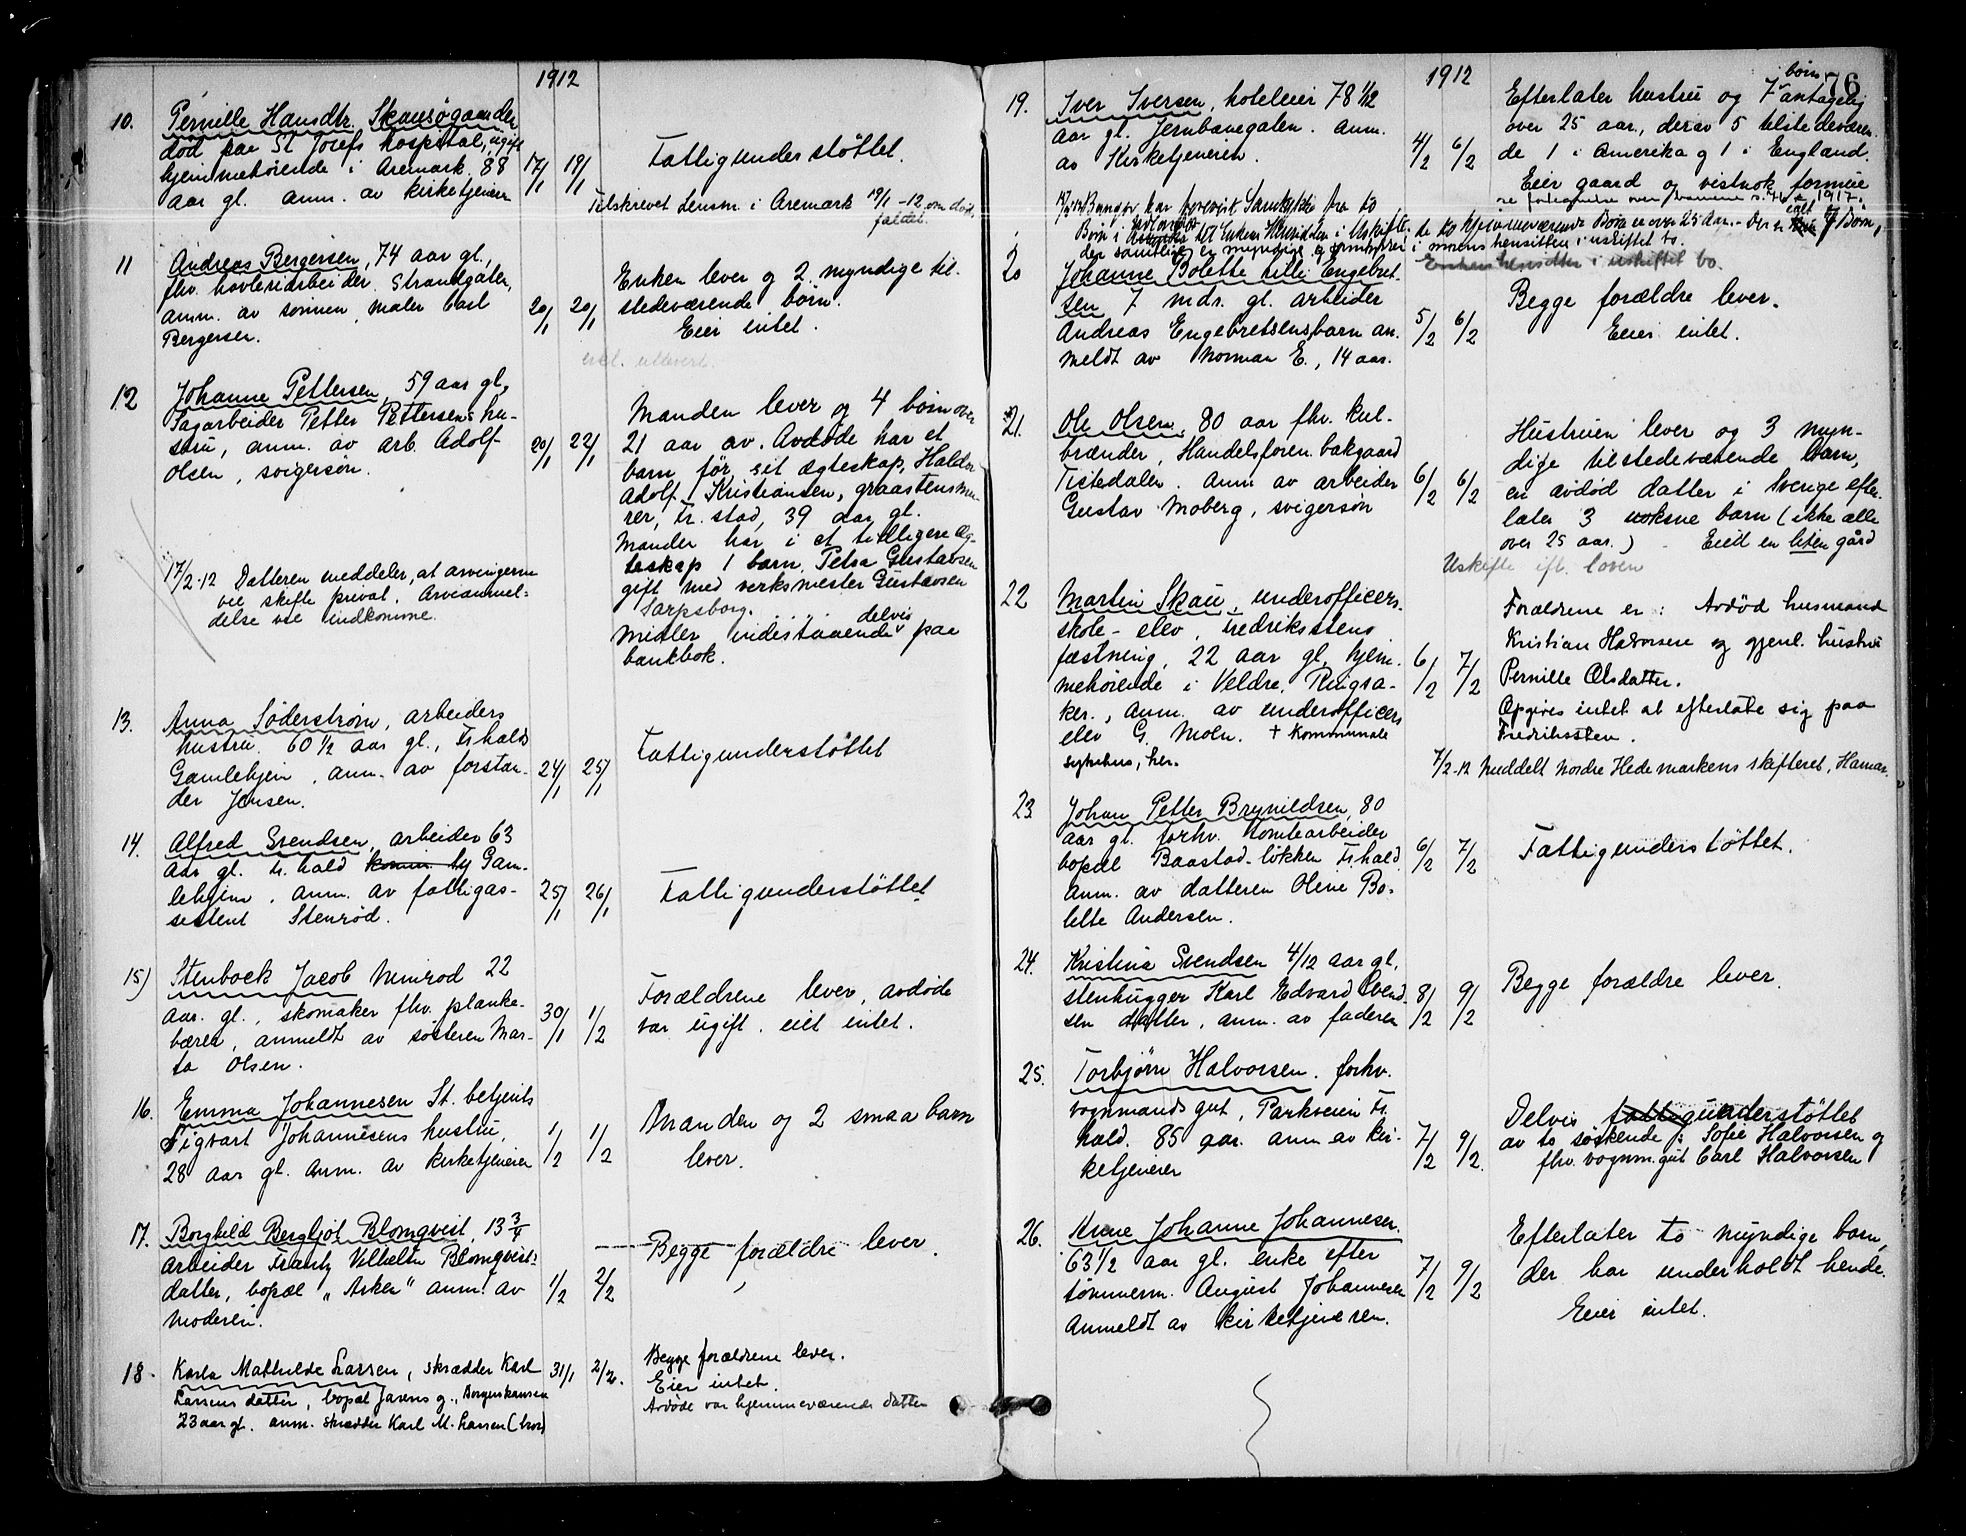 1912
10. Pernille Hansdtr. Skausøgaarden
død paa St Josefs hospital, ugift
hjemmehørende i Aremark, 88
aar gl. anm. av kirketjener
17/1 19/1
Fattigunderstøttet.
Tilskrevet Lensm. i Aremark 19/1-12 om døds-
faldet.
11 Andreas Bergersen, 74 aar gl.,
fhv. høvleriarbeider, Strandgaten,
anm. av sønnen, maler Carl
Bergersen.
20/1 20/1
Enken lever og 2 myndige til-
stedeværende børn.
Eier intet.
12 Johanne Pettersen, 59 aar gl,
Sagarbeider Petter Pettersens hu-
stru, anm. av arb. Adolf
Olsen, svigersøn.
20/1 22/1
Manden lever og 4 børn over
21 aar av. Avdøde har et
barn før sit ægteskap, Haldor
Adolf Kristiansen, graastensmu-
rer, Fr. stad, 39 aar gl.
Manden har i et tidligere æg-
teskap 1 barn, Petra Gustavsen
gift med verksmester Gustavsen
Sarpsborg.
delvis
Midler indestaaende paa
bankbok.
17/2-12 Datteren meddeler, at arvingerne
vil skifte privat. Arveanmel-
delse vil indkomme.
13. Anna Söderstrøm, arbeiders
hustru. 60 1/2 aar gl., Fr.halds
Gamlehjem, anm. av forstan-
der Jensen.
24/1 25/1
Fattigunderstøttet
14. Alfred Svendsen, arbeider 63
aar gl. Fr.hald komm. by Gam-
lehjem. anm. av fattigas-
sistent Stenrød.
25/1 26/1
Fattigunderstøttet
15) Stenbock Jacob Nimrod 22
aar. gl., skomaker fhv. planke-
bærer, anmeldt av søsteren Mar-
ta Olsen.
30/1 1/2
Forældrene lever, avdøde
var ugift. eiet intet.
16. Emma Johannesen St. betjents
Sigvart Johannesens hustru,
28 aar gl. anm. av kirketjeneren
1/2 1/2
Manden og 2 smaa barn
lever.
17. Borghild Bergljot Blomqvist, 13 3/4
arbeider Frantz Vilhelm Blomqvists
datter, bopæl "Asken" anm. av
moderen.
1/2 2/2
Begge forældre lever.
18. Karla Mathilde Larsen, skrædder Karl
Larsens datter, bopæl Jarens g., Borgerskansen
23 aar gl. anm. skrædder Karl M. Larsen (bror)
31/1 2/2.
Begge forældrene lever.
Eier intet.
Avdøde var hjemmeværende datter
76
1912
19. Iver Iversen, hoteleier 78 1/2
aar gl. Jernbanegaten. anm.
av Kirketjeneren.
4/2 6/2
børn
Efterlater hustru og 7 antagelig
over 25 aar, derav 5 tilstedeværen-
de 1 i Amerika og 1 i England.
Eier gaard og vistnok formue
Børn i Utlandet til Enkens Hensidden i Uskifte. de to hjemmeværende Børn er over 25 Aar. - Der er ialt 7 Børn,
der samtlige er myndige og samtykker i morens hensitten i uskiftet bo.
Enkens hensidden i uskiftet bo.
20 Johanne Bolette Lilli Engebret-
sen 7 mdr. gl. arbeider
Andreas Engebretsens barn an-
meldt av Norman E., 14 aar.
5/2 6/2
Begge forældre lever.
Eier intet.
21. Ole Olsen, 80 aar fhv. kul-
brænder, Handelsforen. bakgaard
Tistedalen. Anm av arbeider
Gustav Moberg, svigersøn
6/2 6/2
Hustruen lever og 3 myn-
dige tilstedeværende barn,
en avdød datter i Sverige efter-
later 3 voksne barn (ikke alle
over 25 aar.) - Eied en liten gård
Uskifte ifl. loven
22 Martin Skau, underofficers-
skole-elev, Fredrikstens
fæstning, 22 aar gl, hjem-
mehørende i Veldre, Ringsa-
ker., anm. av underofficers
elev G. Moln. + Kommunale
sykehus, her.
6/2 7/2
Forældrene er: Avdød husmand
Kristian Halvorsen og gjenl. hustru
Pernille Olsdatter.
Opgives intet at efterlate sig paa
Fredriksten.
7/2-12 Meddelt Nordre Hedemarkens skifteret, Hamar.
23. Johan Petter Brynildsen, 80
aar gl. forhv. tomtearbeider
bopæl Baastad-løkken Fr.hald.
Anm. av datteren Oline Bo-
lette Andersen.
6/2 7/2
Fattigunderstøttet.
24. Kristina Svendsen 4/12 aar gl.
stenhugger Karl Edvard Svend-
sen datter, anm. av faderen
8/2 9/2
Begge forældre lever.
25. Torbjørn Halvorsen. forhv.
vognmandsgut, Parkveien Fr.
hald. 85 aar. anm av kir-
ketjeneren
7/2 9/2.
Delvis fattigunderstøttet
av to søskende: Sofie Halvorsen og
fhv. vognm.gut Carl Halvorsen
26. Anne Johanne Johannesen.
63 1/2 aar gl. enke efter
tømmerm. August Johannesen
Anmeldt av kirketjeneren.
7/2 9/2
Efterlater to myndige barn,
der har underholdt hende.
Eier intet.